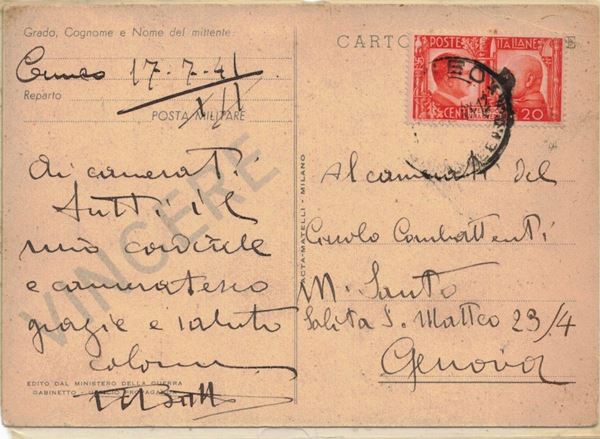 Grado, Cognome e Nome del mittente
Cuneo 17-7-41
Reparto
XIX
POSTA MILITARE
VINCERE
Ai camerati
tutti il
mio cordiale
e cameratesco
grazie e saluto
EDITO DAL MINISTERO DELLA GUERRA
GABINETTO - UFFICIO PROPAGANDA
ACTA-MATELLI - MILANO
CARTO E
POSTE ITALIANE
CENT 20
Ai camerati del
Circolo Combattenti
M. Santo
Salita S. Matteo 23/4
Genova